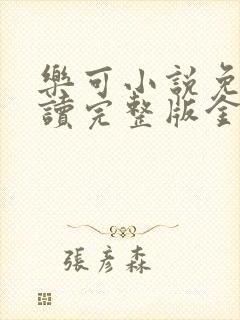 樂可小說免
讀完整版全
張彥森